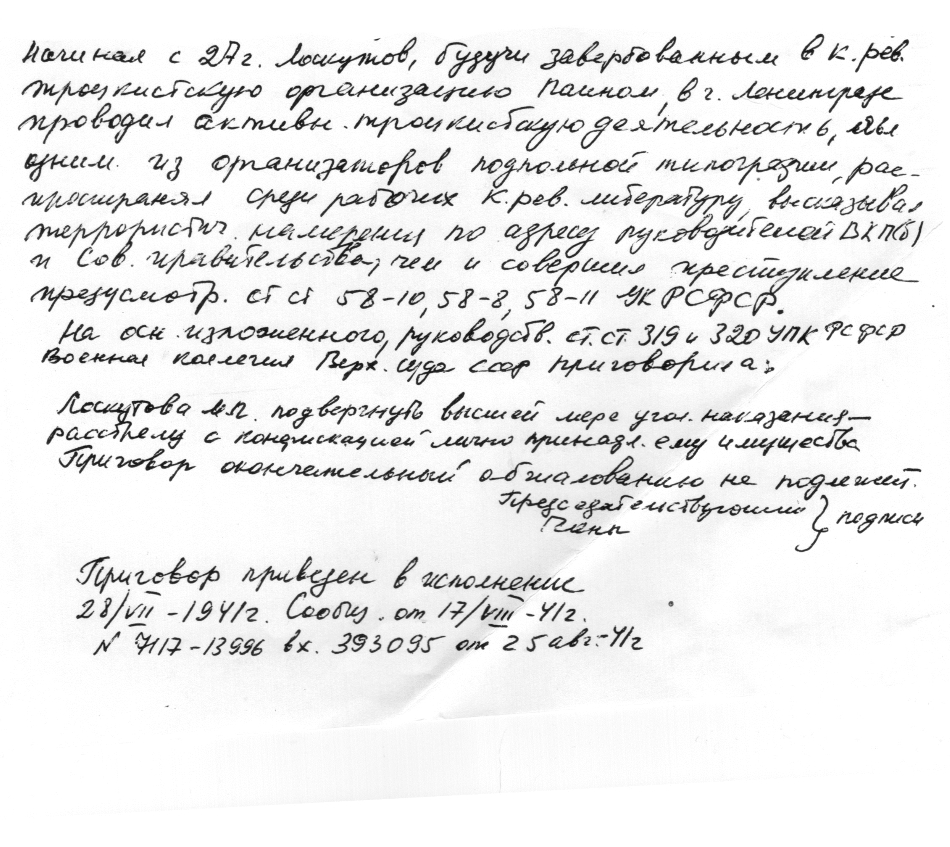 Начиная с 27г. Лоскутов, будучи завербованным в к.рев.
троцкистскую организацию Паином, в г. Ленинграде
проводил активн. троцкистскую деятельность,
одним из организаторов подпольной типографии, рас-
пространял среди рабочих к.рев. литературу, высказывал
террористич. намерения по адресу руководителей ВКП(б)
и Сов. правительства, чем и совершил преступление
предусмотр. ст ст 58-10, 58-8, 58-11 УК РСФСР.
На осн. изложенного, руководств. ст.ст. 319 и 320 УПК РСФСР
Военная коллегия Верх. суда ссср приговорила:
Лоскутова М.П. подвергнуть высшей мере угол. наказания—
расстрелу с конфискацией лично принадл. ему имущества
Приговор окончательный обжалованию не подлежит.
Председательствующий } подписи
Члены
Приговор приведен в исполнение
28/VII-1941г. Сообщ. от 17/VIII-41г.
N 7117-13996 вх. 393095 от 25 авг.-41г